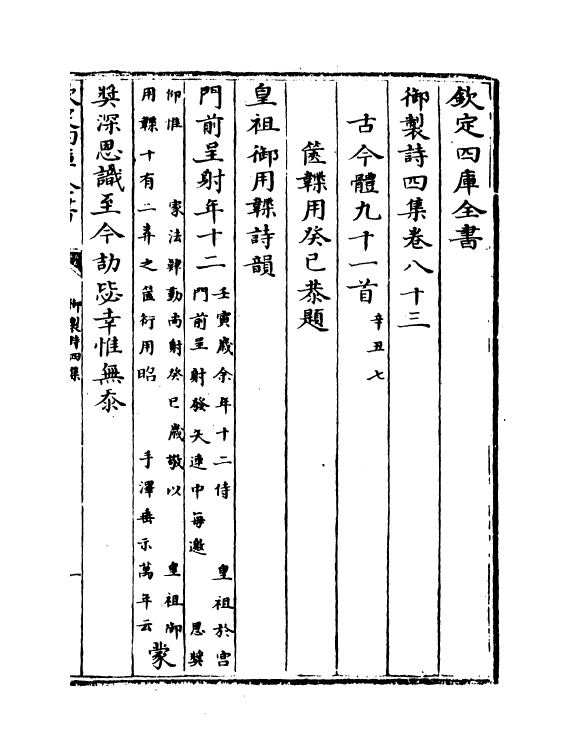 欽定四庫全書
御製詩四集卷八十三
古今體九十一首辛丑七
箑韘用癸巳恭題
皇祖御用韘詩韻
門前呈射年十二壬寅歲余年十二侍 皇祖於宮
門前呈射發矢連中每邀 恩奬
仰惟 家法肄勤尚射癸巳歲敬以 皇祖御
用韘十有二弆之箑衍用昭 手澤垂示萬年云蒙
奬深思識至今劼毖幸惟無忝
御製詩四集
一